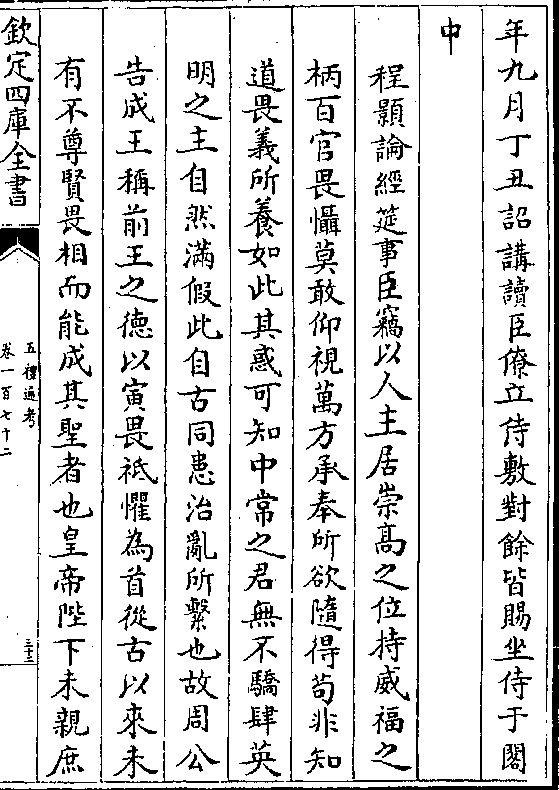 年九月丁丑詔講讀臣僚立侍敷對餘皆賜坐侍于閣
中
程顥論經筵事臣竊以人主居崇髙之位持威福之
柄百官畏懾莫敢仰視萬方承奉所欲隨得苟非知
道畏義所養如此其惑可知中常之君無不驕肆英
明之主自然滿假此自古同患治亂所繫也故周公
告成王稱前王之德以寅畏祗懼為首從古以來未
有不尊賢畏相而能成其聖者也皇帝陛下未親庶
欽定四庫全書
五禮通考
卷一百七十二
三十三